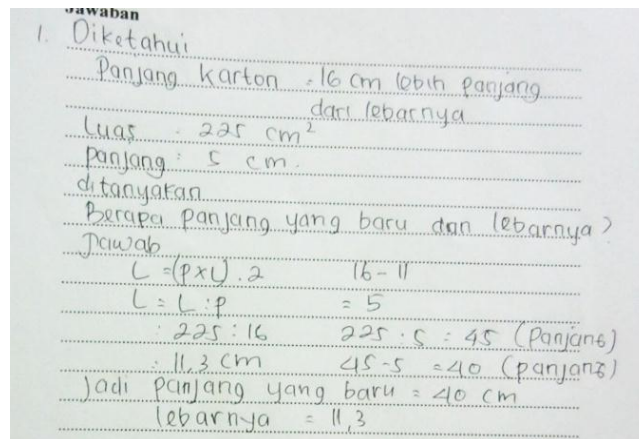 Jawaban
1. Diketahui
Panjang karton : 16 cm lebih panjang
dari lebarnya
Luas : 225 cm²
Panjang : 5 cm.
ditanyakan
Berapa panjang yang baru dan lebarnya?
Jawab
L = (p x L) . 2 16 - 11
L = L : p = 5
: 225 : 16 225 : 5 : 45 (Panjang)
: 11,3 cm 45 - 5 = 40 (panjang)
Jadi panjang yang baru = 40 cm
lebarnya = 11,3